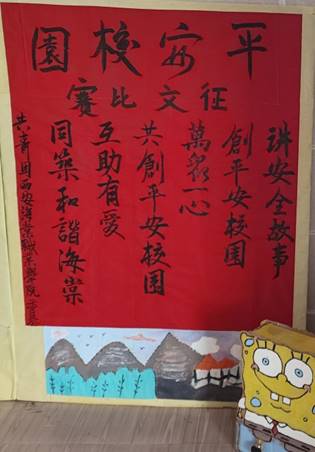 平安校園
征文比賽
讲安全故事
創平安校園
萬衆一心
共創平安校園
互助有愛
同築和諧海棠
共青团西安海棠職業學院